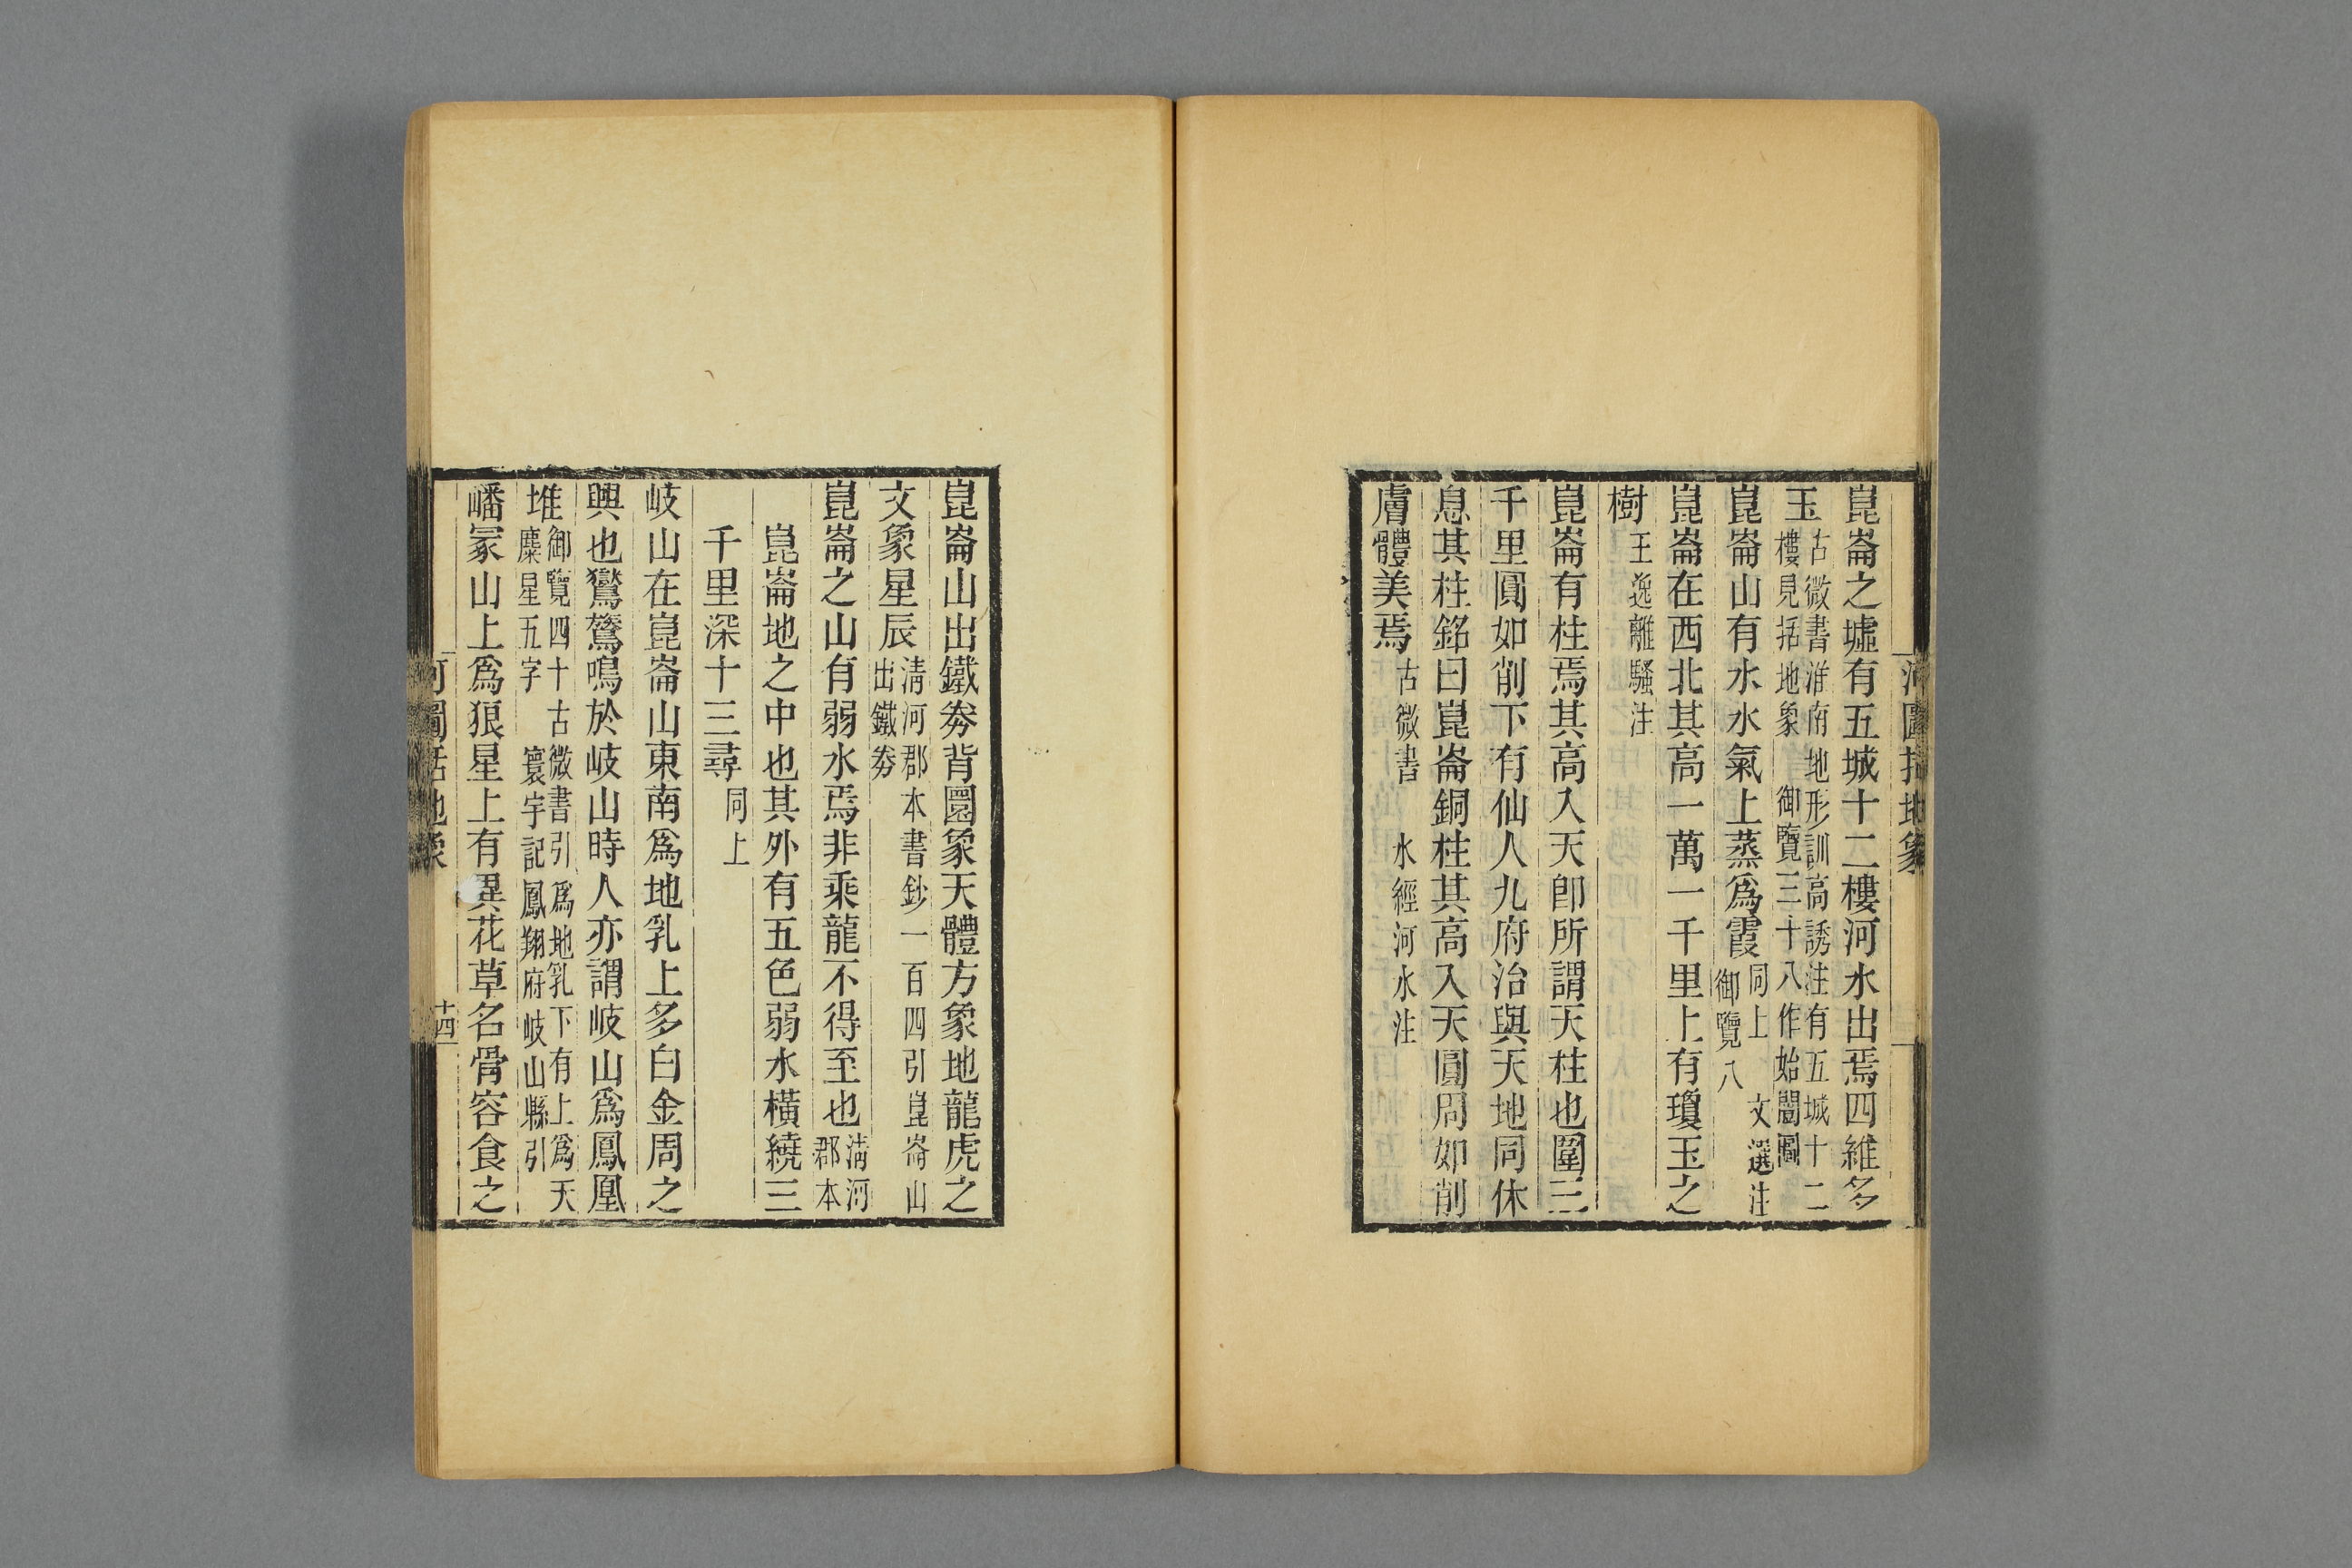 河圖括地象
崑崙之墟有五城十二樓河水出焉四維多
玉古微書淮南地形訓高誘注有五城十二樓見括地象 御覽三十八作始闓圖
崑崙山有水水氣上蒸爲霞同上 文選注 御覽八
崑崙在西北其高一萬一千里上有瓊玉之
樹王逸離騷注
崑崙有柱焉其高入天卽所謂天柱也圍三
千里圓如削下有仙人九府治與天地同休
息其柱銘曰崑崙銅柱其高入天圓周如削
膚體美焉古微書 水經河水注
崑崙山出鐵劵背圜象天體方象地龍虎之
文象星辰清河郡本書鈔一百四引崑崙山出鐵劵
崑崙之山有弱水焉非乘龍不得至也清河郡本
崑崙地之中也其外有五色弱水橫繞三
千里深十三尋同上
岐山在崑崙山東南爲地乳上多白金周之
興也鸑鷟鳴於岐山時人亦謂岐山爲鳳凰
堆御覽四十古微書引爲地乳下有上爲天麋星五字 寰宇記鳳翔府岐山縣引
嶓冢山上爲狼星上有異花草名骨容食之
十四